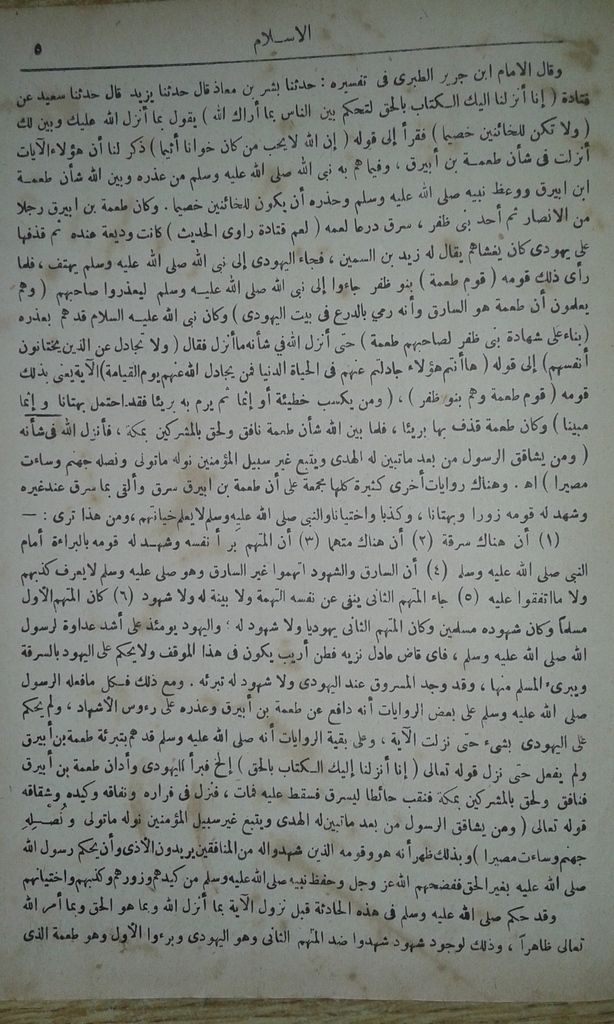 الاسلام
٥
وقال الامام ابن جرير الطبرى فى تفسيره : حدثنا بشر بن معاذ قال حدثنا يزيد قال حدثنا سعيد عن
قتادة ( إنا أنزلنا اليك الكتاب بالحق لتحكم بين الناس بما أراك الله ) يقول بما أنزل الله عليك وبين لك
( ولا تكن للخائنين خصيما ) فقرأ إلى قوله ( إن الله لايحب من كان خوانا أثيما ) ذكر لنا أن هؤلاء الآيات
أنزلت فى شأن طعمة بن أبيرق ، وفيما هم به نبى الله صلى الله عليه وسلم من عذره وبين الله شأن طعمة
ابن ابيرق ووعظ نبيه صلى الله عليه وسلم وحذره أن يكون للخائنين خصيما . وكان طعمة بن ابيرق رجلا
من الانصار ثم أحد بنى ظفر ، سرق درعا لعمه ( لعم قتادة راوى الحديث ) كانت وديعة عنده ثم قذفها
على يهودى كان يغشاهم يقال له زيد بن السمين ، فجاء اليهودى إلى نبى الله صلى الله عليه وسلم يهتف ، فلما
رأى ذلك قومه ( قوم طعمة ) بنو ظفر جاءوا إلى نبى الله صلى الله عليه وسلم ليعذروا صاحبهم ( وهم
يعلمون أن طعمة هو السارق وأنه رمي بالدرع فى بيت اليهودى ) وكان نبى الله عليه السلام قد هم بعذره
( بناء على شهادة بنى ظفر لصاحبهم طعمة ) حتى أنزل الله في شأنه ما أنزل فقال ( ولا تجادل عن الذين يختانون
أنفسهم ) إلى قوله ( ها أنتم هؤلاء جادلتم عنهم فى الحياة الدنيا فمن يجادل الله عنهم يوم القيامة ) الآية يعنى بذلك
قومه ( قوم طعمة وهم بنو ظفر ) ، ( ومن يكسب خطيئة أو إثما ثم يرم به بريئا فقد احتمل بهتانا و إثما
مبينا ) وكان طعمة قذف بها بريئا ، فلما بين الله شأن طعمة نافق ولحق بالمشركين بمكة ، فأنزل الله فى شأنه
( ومن يشاقق الرسول من بعد ماتبين له الهدى ويتبع غير سبيل المؤمنين نوله ماتولى ونصله جهنم وساءت
مصيرا ) اه . وهناك روايات أخرى كثيرة كلها مجمعة على أن طعمة بن ابيرق سرق وألقى بما سرق عند غيره
وشهد له قومه زورا وبهتانا ، وكذبا واختيانا والنبى صلى الله عليه وسلم لايعلم خيانتهم ، ومن هذا ترى : —
(١) أن هناك سرقة (٢) أن هناك متهما (٣) أن المتهم برأ نفسه وشهد له قومه بالبراءة أمام
النبى صلى الله عليه وسلم (٤) أن السارق والشهود اتهموا غير السارق وهو صلى عليه وسلم لايعرف كذبهم
ولا ما اتفقوا عليه (٥) جاء المتهم الثانى ينفى عن نفسه التهمة ولا بينة له ولا شهود (٦) كان المتهم الأول
مسلما وكان شهوده مسلمين وكان المتهم الثانى يهوديا ولا شهود له ؛ واليهود يومئذ على أشد عداوة لرسول
الله صلى الله عليه وسلم ، فاى قاض عادل نزيه فطن أريب يكون فى هذا الموقف ولا يحكم على اليهود بالسرقة
ويبرىء المسلم منها ، وقد وجد المسروق عند اليهودى ولا شهود له تبرئه . ومع ذلك فكل مافعله الرسول
صلى الله عليه وسلم على بعض الروايات أنه دافع عن طعمة بن أبيرق وعذره على رءوس الأشهاد ، ولم يحكم
على اليهودى بشىء حتى نزلت الآية ، وعلى بقية الروايات أنه صلى الله عليه وسلم قد هم بتبرئة طعمة بن أبيرق
ولم يفعل حتى نزل قوله تعالى ( إنا أنزلنا إليك الكتاب بالحق ) إلخ فبرأ اليهودى وأدان طعمة بن أبيرق
فنافق ولحق بالمشركين بمكة فنقب حائطا ليسرق فسقط عليه فمات ، فنزل فى فراره ونفاقه وكيده وشقاقه
قوله تعالى ( ومن يشاقق الرسول من بعد ماتبين له الهدى ويتبع غير سبيل المؤمنين نوله ماتولى ونُصْلِهِ
جهنم وساءت مصيرا ) وبذلك ظهر أنه هو وقومه الذين شهدوا له من المنافقين يريدون الأذى وأن يحكم رسول الله
صلى الله عليه بغير الحق ففضحهم الله عز وجل وحفظ نبيه صلى الله عليه وسلم من كيدهم وزورهم وكذبهم واختيانهم
وقد حكم صلى الله عليه وسلم فى هذه الحادثة قبل نزول الآية بما أنزل الله وبما هو الحق وبما أمر الله
تعالى ظاهراً ، وذلك لوجود شهود شهدوا ضد المتهم الثانى وهو اليهودى وبرءوا الأول وهو طعمة الذى